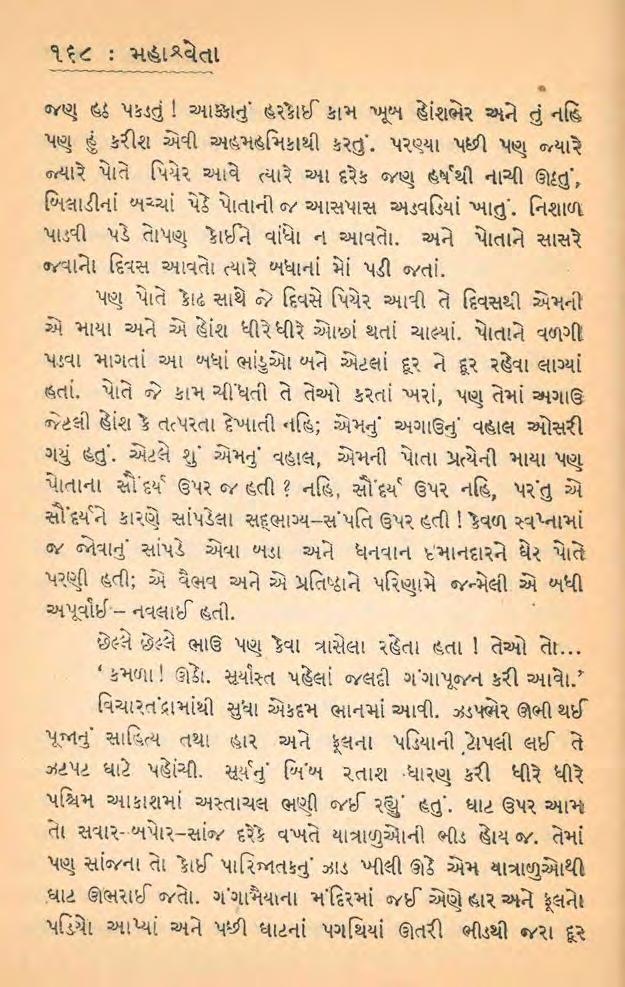 ૧૬૮ : મહાશ્વેતા
જણ હઠ પકડતું ! આક્કાનું હરકોઈ કામ ખૂબ હોંશભેર અને તું નહિ
પણ હું કરીશ એવી અહમહમિકાથી કરતું. પરણ્યા પછી પણ જ્યારે
જ્યારે પોતે પિયેર આવે ત્યારે આ દરેક જણ હર્ષથી નાચી ઊઠતું,
બિલાડીનાં બચ્ચાં પેઠે પોતાની જ આસપાસ અડવડિયાં ખાતું. નિશાળ
પાડવી પડે તોપણ કોઈને વાંધો ન આવતો. અને પોતાને સાસરે
જવાનો દિવસ આવતો ત્યારે બધાનાં મોં પડી જતાં.
પણ પોતે કોઢ સાથે જે દિવસે પિયેર આવી તે દિવસથી એમની
એ માયા અને એ હોંશ ધીરેધીરે ઓછાં થતાં ચાલ્યાં. પોતાને વળગી
પડવા માગતાં આ બધાં ભાંડુઓ બને એટલાં દૂર ને દૂર રહેવા લાગ્યાં
હતાં. પોતે જે કામ ચીંધતી તે તેઓ કરતાં ખરાં, પણ તેમાં અગાઉ
જેટલી હોંશ કે તત્પરતા દેખાતી નહિ; એમનું અગાઉનું વહાલ ઓસરી
ગયું હતું. એટલે શું એમનું વહાલ, એમની પોતા પ્રત્યેની માયા પણ
પોતાના સૌંદર્ય ઉપર જ હતી ? નહિ, સૌંદર્ય ઉપર નહિ, પરંતુ એ
સૌંદર્યને કારણે સાંપડેલા સદ્ભાગ્ય–સંપતિ ઉપર હતી ! કેવળ સ્વપ્નામાં
જ જોવાનું સાંપડે એવા બડા અને ધનવાન ઈમાનદારને ઘેર પોતે
પરણી હતી; એ વૈભવ અને એ પ્રતિષ્ઠાને પરિણામે જન્મેલી એ બધી
અપૂર્વાઈ – નવલાઈ હતી.
છેલ્લે છેલ્લે ભાઉ પણ કેવા ત્રાસેલા રહેતા હતા ! તેઓ તો...
‘ કમળા ! ઊઠો. સૂર્યાસ્ત પહેલાં જલદી ગંગાપૂજન કરી આવો.’
વિચારતંદ્રામાંથી સુધા એકદમ ભાનમાં આવી. ઝડપભેર ઊભી થઈ
પૂજાનું સાહિત્ય તથા હાર અને ફૂલના પડિયાની ટોપલી લઈ તે
ઝટપટ ઘાટે પહોંચી. સૂર્યનું બિંબ રતાશ ધારણ કરી ધીરે ધીરે
પશ્ચિમ આકાશમાં અસ્તાચલ ભણી જઈ રહ્યું હતું. ઘાટ ઉપર આમ
તો સવાર-બપોર–સાંજ દરેક વખતે યાત્રાળુઓની ભીડ હોય જ. તેમાં
પણ સાંજના તો કોઈ પારિજાતકનું ઝાડ ખીલી ઊઠે એમ યાત્રાળુઓથી
ઘાટ ઊભરાઈ જતો. ગંગામૈયાના મંદિરમાં જઈ એણે હાર અને ફૂલનો
પડિયો આપ્યાં અને પછી ઘાટનાં પગથિયાં ઊતરી ભીડથી જરા દૂર